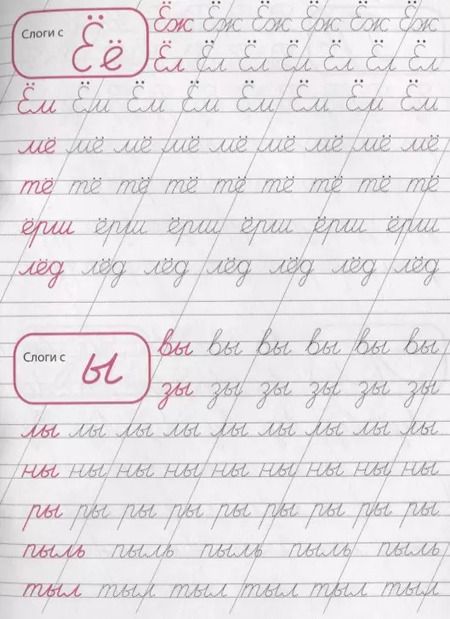 Слоги с Ёё Ёж Ёж Ёж Ёж Ёж Ёж
Ёл Ёл Ёл Ёл Ёл Ёл Ёл
Ём Ём Ём Ём Ём Ём Ём Ём
мё мё мё мё мё мё мё мё мё
тё тё тё тё тё тё тё тё тё
ёрш ёрш ёрш ёрш ёрш ёрш
лёд лёд лёд лёд лёд лёд лёд
Слоги с ы вы вы вы вы вы вы
зы зы зы зы зы зы
лы лы лы лы лы лы лы лы лы
ны ны ны ны ны ны ны ны ны
ры ры ры ры ры ры ры ры ры
пыль пыль пыль пыль пыль
тыл тыл тыл тыл тыл тыл